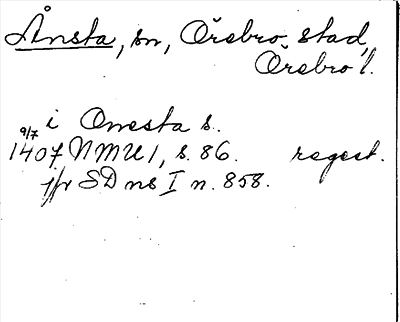 Ånsta, sn, Örebro stad,
Örebro l.
i Onesta s.
9/7
1407 NMU 1, s. 86. regest.
jfr SD ns I n. 858.